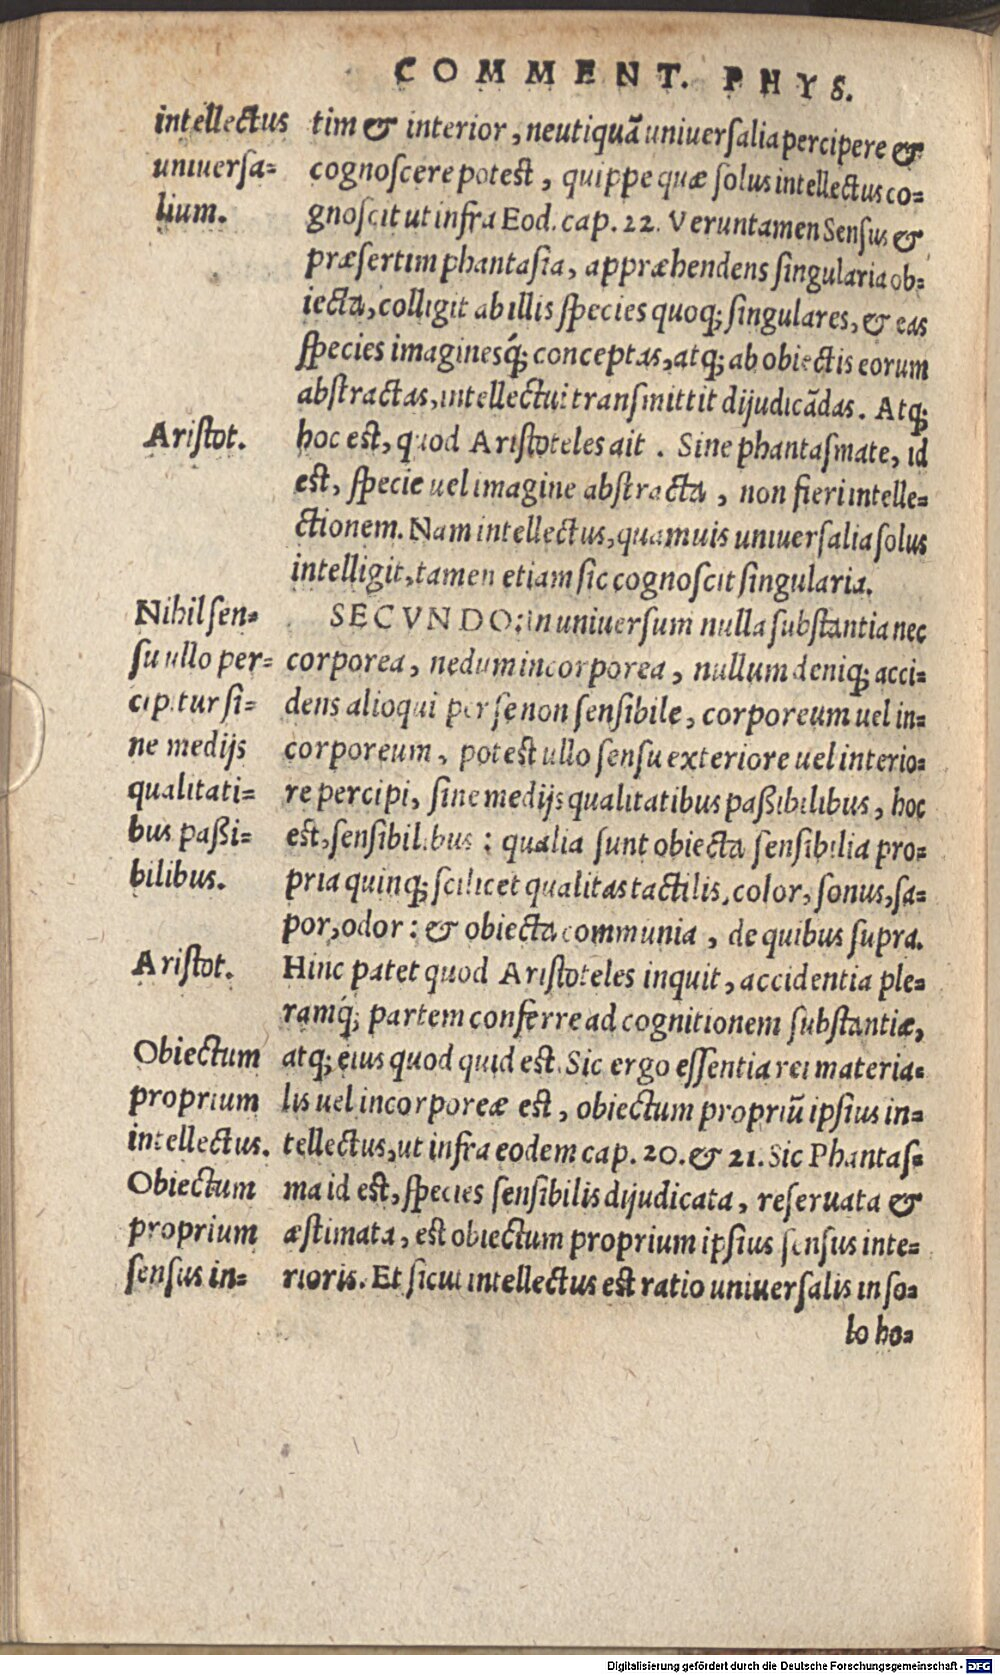 COMMENT. PHYS.
intellectus
uniuersa=
lium.
tim&amp; interior, neutiquã uniuerſalia percipere &amp;
cognoſcere poteſt, quippe quæ ſolus intellectus co=
gnoſcit ut infra Eod. cap. 22. Veruntamen Senſus &amp;
præſertim phantaſia, appræhendens ſingularia ob=
iecta, colligit ab illis ſpecies quoq; ſingulares, &amp; eas
ſpecies imaginesq́; conceptas, atq; ab obiectis eorum
abſtractas, intellectui tranſmittit dijudicãdas. Atq;
Ariſtot.
hoc eſt, quod Ariſtoteles ait. Sine phantaſmate, id
eſt, ſpecie uel imagine abſtracta, non fieri intelle=
ctionem. Nam intellectus, quamuis uniuerſalia ſolus
intelligit, tamen etiam ſic cognoſcit ſingularia.
Nihil ſen=
ſu ullo per=
cipitur ſi=
ne medijs
qualitati=
bus paßi=
bilibus.
SECVNDO: in uniuerſum nulla ſubſtantia nec
corporea, nedum incorporea, nullum deniq; acci=
dens alioqui per ſe non ſenſibile, corporeum uel in=
corporeum, poteſt ullo ſenſu exteriore uel interio=
re percipi, ſine medijs qualitatibus paßibilibus, hoc
eſt, ſenſibilibus: qualia ſunt obiecta ſenſibilia pro=
pria quinq; ſcilicet qualitas tactilis, color, ſonus, ſa=
por, odor: &amp; obiecta communia, de quibus ſupra.
Ariſtot.
Hinc patet quod Ariſtoteles inquit, accidentia ple=
ramq́; partem conferre ad cognitionem ſubſtantiæ,
Obiectum
proprium
intellectus.
atq; eius quod quid eſt. Sic ergo eſſentia rei materia=
lis uel incorporeæ eſt, obiectum propriũ ipſius in=
tellectus, ut infra eodem cap. 20. &amp; 21. Sic Phantaſ=
Obiectum
proprium
ſenſus in=
ma id eſt, ſpecies ſenſibilis dijudicata, reſeruata &amp;
æſtimata, eſt obiectum proprium ipſius ſenſus inte=
rioris. Et ſicut intellectus eſt ratio uniuerſalis in ſo=
lo ho=
Digitalisierung gefördert durch die Deutsche Forschungsgemeinschaft - DFG